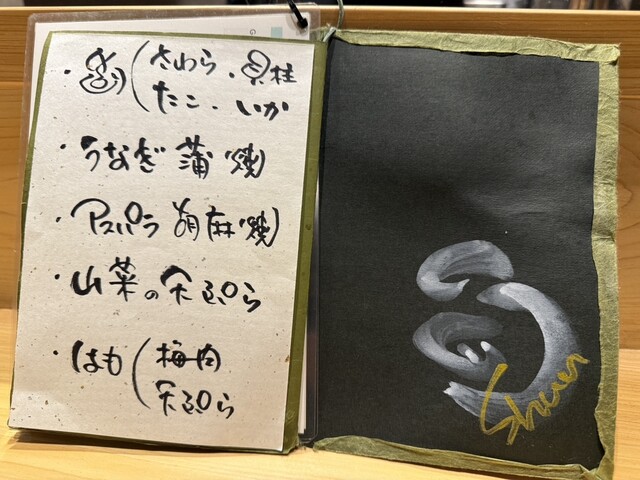 ・(さわら・貝柱
たこ・いか
・うなぎ蒲焼
・アスパラ胡麻焼
・山菜の天ぷら
・はも(梅肉
天ぷら
Shun